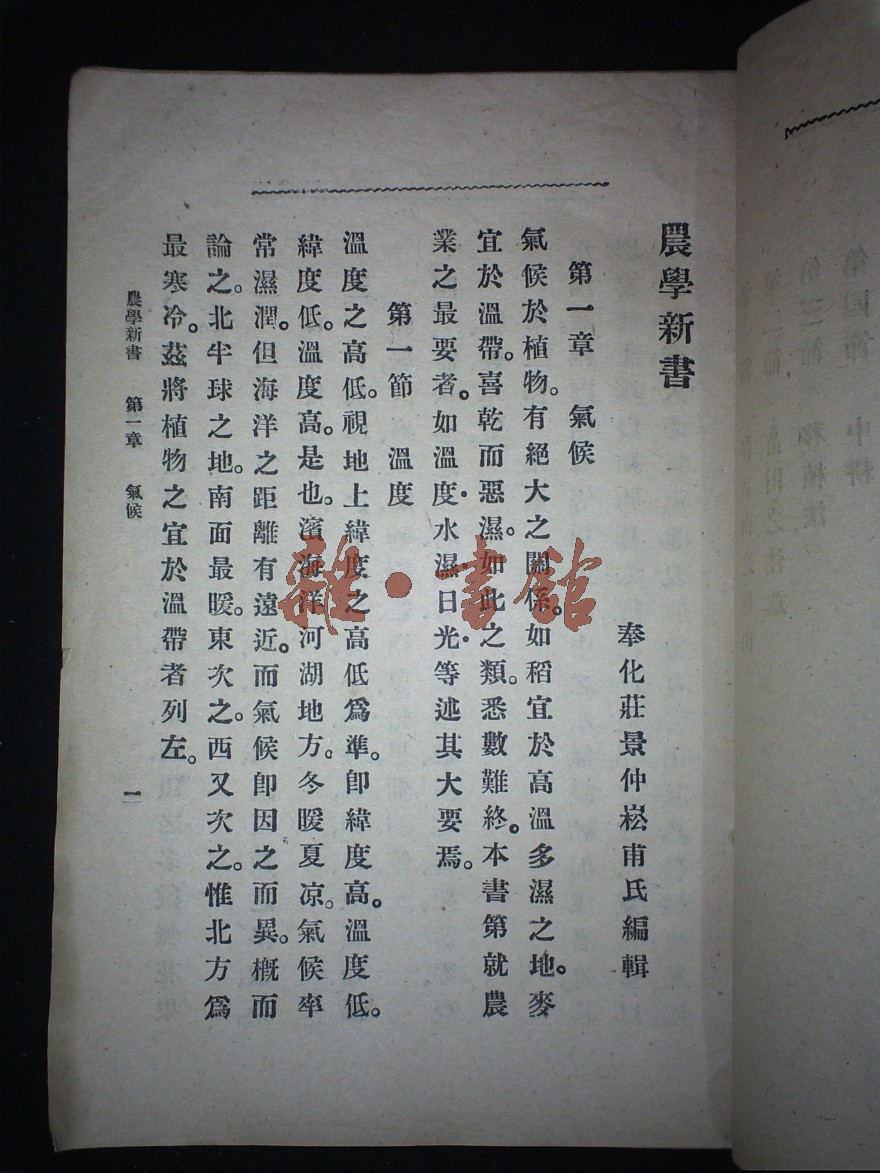 農學新書
奉化莊景仲崧甫氏編輯
第一章 氣候
氣候於植物。有絕大之關係。如稻宜於高溫多濕之地。麥
宜於溫帶。喜乾而惡濕。如此之類。悉數難終。本書第就農
業之最要者。如溫度・水濕日光・等述其大要焉。
第一節 溫度
溫度之高低。視地上緯度之高低爲準。卽緯度高。溫度低。
緯度低。溫度高。是也。濱海洋河湖地方。冬暖夏凉。氣候率
常濕潤。但海洋之距離有遠近。而氣候卽因之而異。槪而
論之。北半球之地。南面最暖。東次之。西又次之。惟北方爲
最寒冷。茲將植物之宜於溫帶者列左。
農學新書 第一章 氣候 一
雜・書館
第四節 中耕